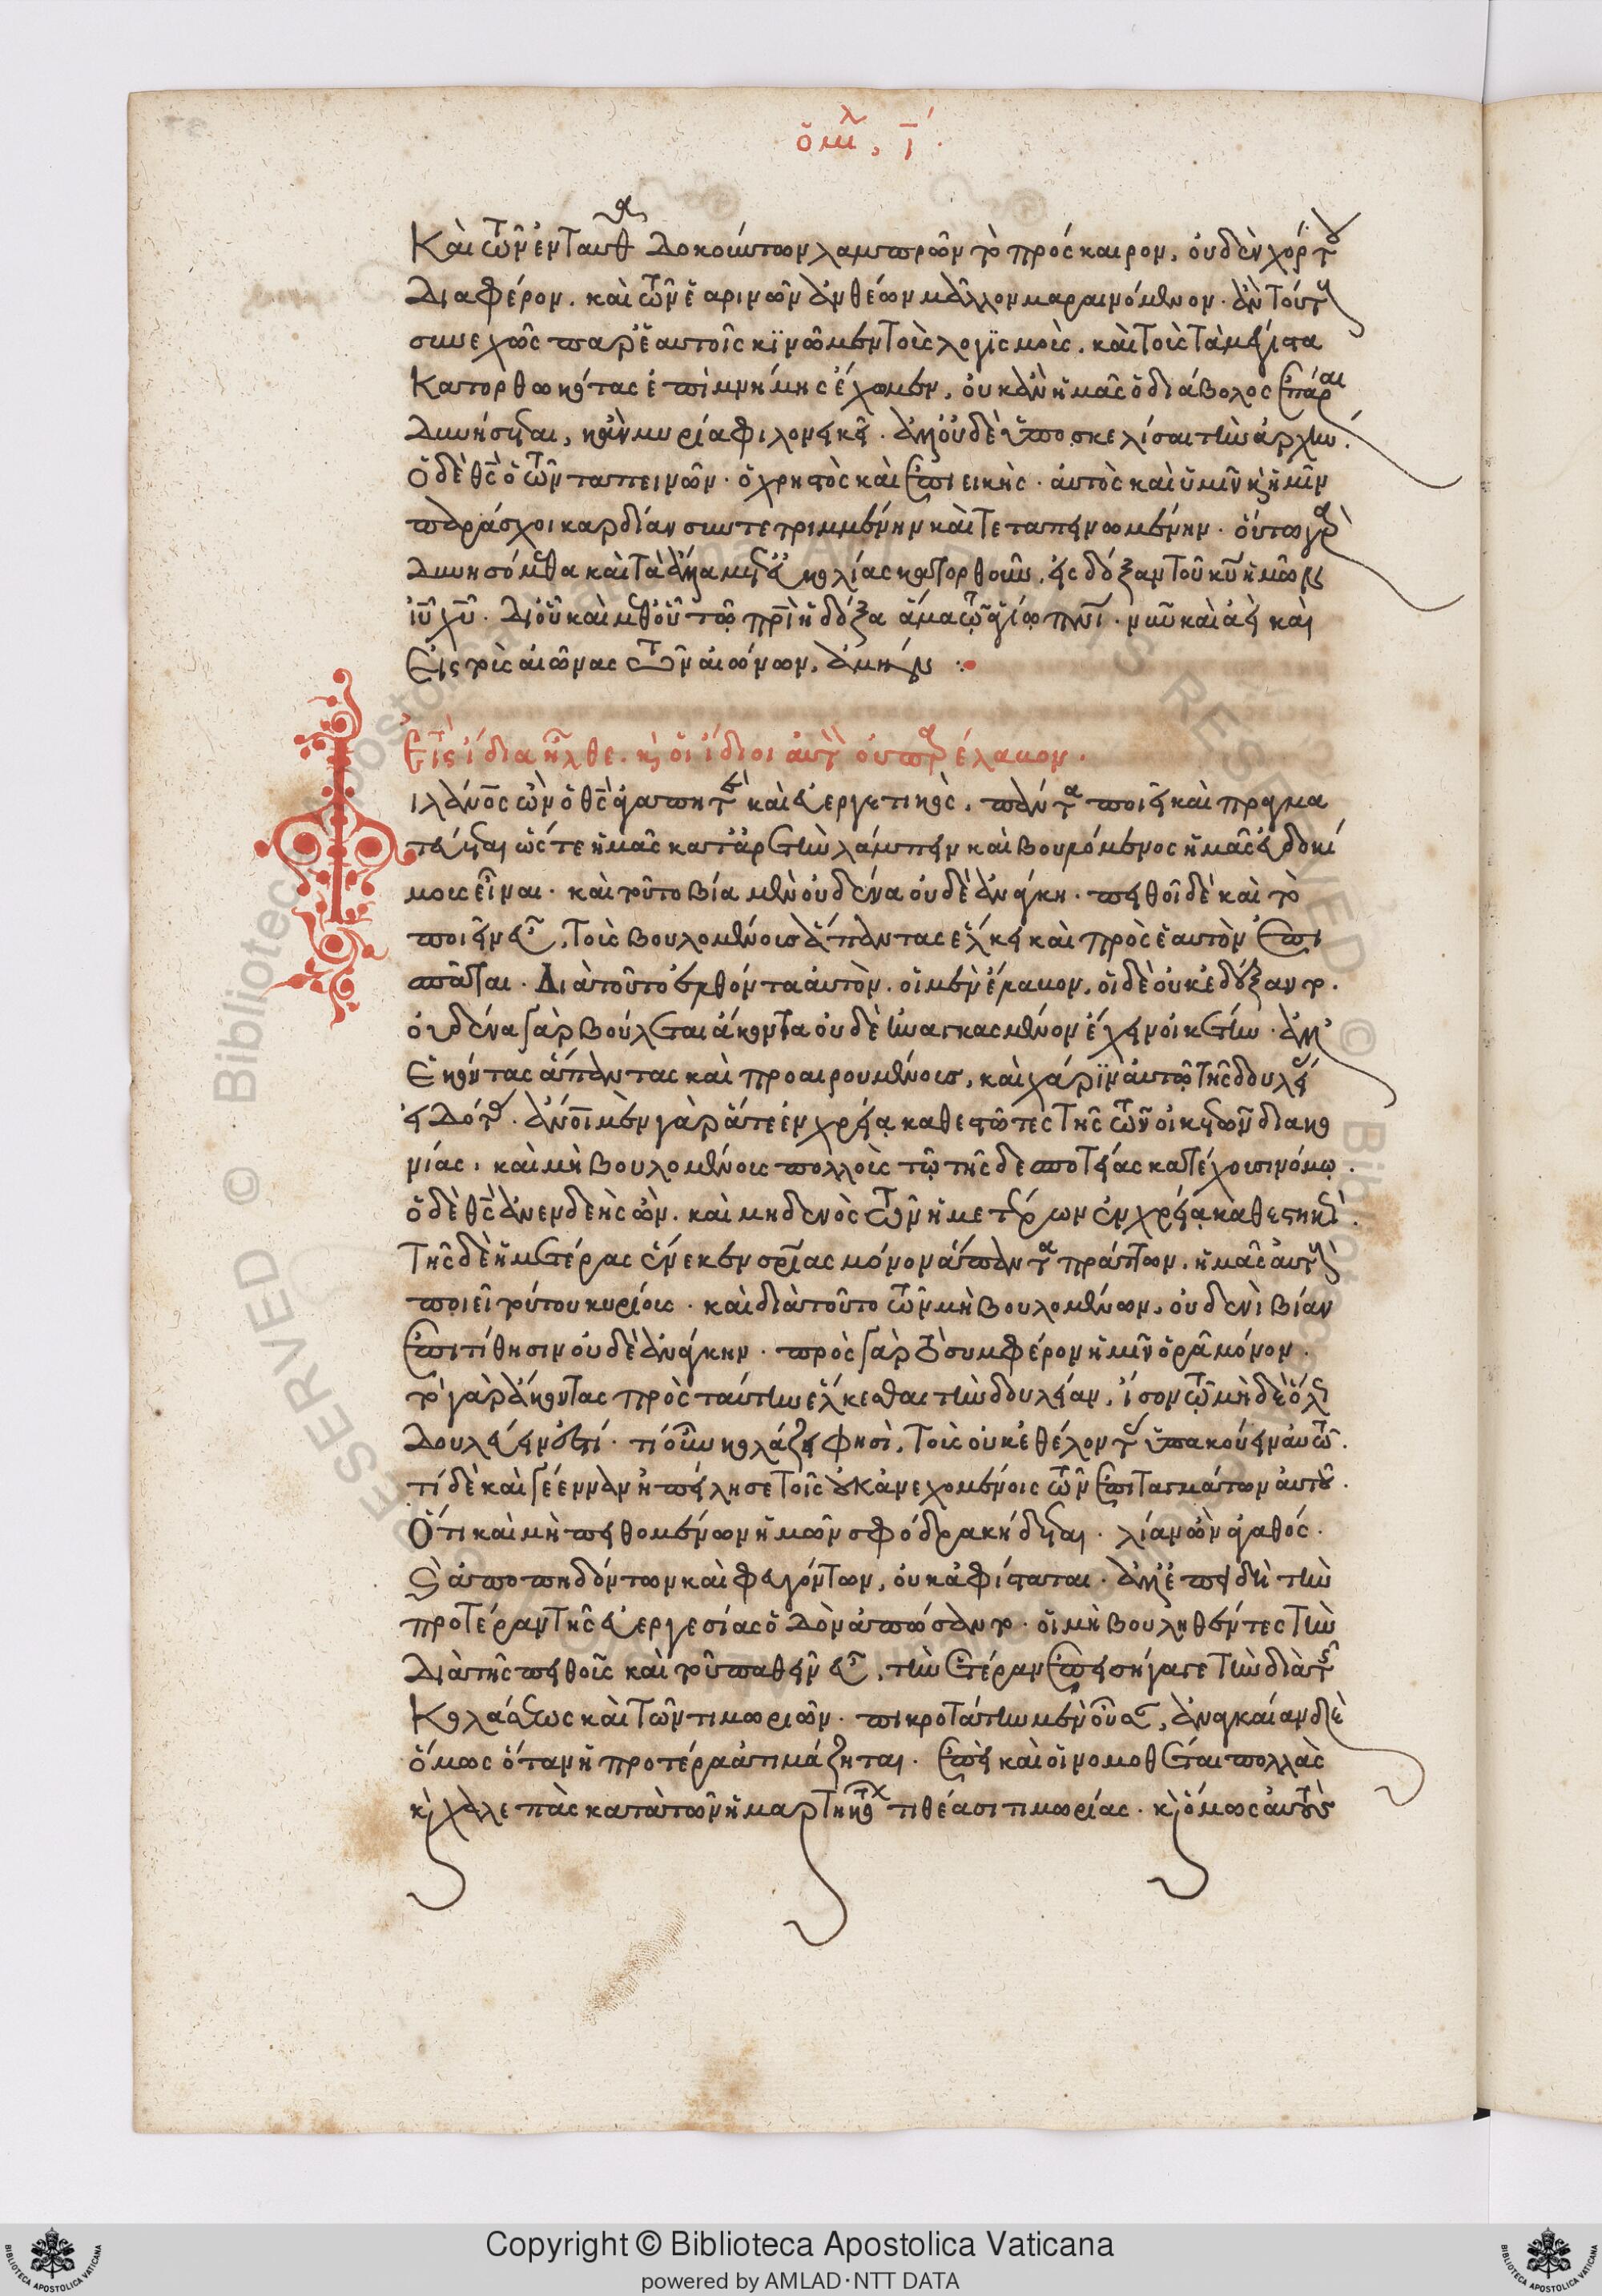 ὁμλ, ι΄.
Καὶ τῶν ἐνταῦθα δοκούντων λαμπρῶν τὸ πρόσκαιρον, οὐδὲν χόρτου
διαφέρον. καὶ τῶν ἐαρινῶν ἀνθέων μᾶλλον μαραινόμενον. ἂν τούτους
συνεχῶς παρ' ἑαυτοῖς κινῶμεν τοὺς λογισμοὺς. καὶ τοὺς τὰ μέγιστα
κατορθωκότας ἐπὶ μνήμης ἔχωμεν, οὐκ ἂν ἡμᾶς ὁ διάβολος ἐπάραι
δυνήσεται, κἂν μυρία φιλονεικῇ. ἀλλ' οὐδὲ ὑποσκελίσαι τὴν ἀρχήν.
Ὁ δὲ θς ὁ τῶν ταπεινῶν. ὁ χρηστὸς καὶ ἐπιεικὴς. αὐτὸς καὶ ὑμῖν κ ἡμῖν
παράσχοι καρδίαν συντετριμμένην καὶ τεταπεινωμένην. οὕτω γὰρ
δυνησόμεθα καὶ τὰ ἄλλα μετ' εὐκολίας κατορθοῦν, εἰς δόξαν τοῦ κυ ἡμῶν
ιυ χυ. δι' οὗ καὶ μεθ' οὗ τῷ πρι ἡ δόξα ἅμα τῷ ἁγίῳ πνι. νῦν καὶ ἀεὶ καὶ
Εἰς τοὺς αἰῶνας τῶν αἰώνων, ἀμήν :·
Εἰς τὰ ἴδια ἦλθε. κ οἱ ἴδιοι αὐτὸν οὐ παρέλαβον.
ιλάνος ὢν ὁ θς ἀγαπητοὶ καὶ εὐεργετικὸς, πάντα ποιεῖ καὶ πραγμα
τεύεται ὥστε ἡμᾶς κατ' ἀρετὴν λάμπειν καὶ βουλόμενος ἡμᾶς εὐδοκί
μους εἶναι. καὶ τοῦτο βίᾳ μὲν οὐδένα οὐδὲ ἀνάγκῃ. πειθοῖ δὲ καὶ τῷ
ποιεῖν εὖ, τοὺς βουλομένους ἅπαντας ἕλκει καὶ πρὸς ἑαυτὸν ἐπι
σπᾶται. Διὰ τοῦτο ἐλθόντα αὐτὸν. οἱ μὲν ἔλαβον, οἱ δὲ οὐκ ἐδέξαντο.
οὐδένα γὰρ βούλεται ἄκοντα οὐδὲ ἠναγκασμένον ἔχειν οἰκέτην. ἀλλ'
ἑκόντας ἅπαντας καὶ προαιρουμένους, καὶ χάριν αὐτῷ τῆς δουλείας
εἰδότας. ἄνοι μὲν γὰρ ἅτε ἐν χρείᾳ καθεστῶτες τῆς τῶν οἰκετῶν διακο
νίας, καὶ μὴ βουλομένους πολλοὺς τῷ τῆς δεσποτείας κατέχουσι νόμῳ.
ὁ δὲ θς ἀνενδεὴς ὢν. καὶ μηδενὸς τῶν ἡμετέρων ἐν χρείᾳ καθεστηκὼς.
τῆς δὲ ἡμετέρας ἕνεκεν σριας μόνον ἅπαντα πράττων, ἡμᾶς αὐτοὺς
ποιεῖ τούτου κυρίους. καὶ διὰ τοῦτο τῶν μὴ βουλομένων, οὐδενὶ βίαν
ἐπιτίθησιν οὐδὲ ἀνάγκην. πρὸς γὰρ τὸ συμφέρον ἡμῖν ὁρᾷ μόνον.
τὸ γὰρ ἄκοντας πρὸς ταύτην ἕλκεσθαι τὴν δουλείαν, ἴσον τῷ μηδὲ ὅλως
δουλεύειν ἐστί. τί οὖν κολάζει φησὶ, τοὺς οὐκ ἐθέλοντας ὑπακούειν αὐτῷ.
τί δὲ καὶ γέενναν ἠπείλησε τοῖς οὐκ ἀνεχομένοις τῶν ἐπιταγμάτων αὐτοῦ.
Ὅτι καὶ μὴ πειθομένων ἡμῶν σφόδρα κήδεται. λίαν ὢν ἀγαθός.
κ ἀποπηδόντων καὶ φευγόντων, οὐκ ἀφίσταται. ἀλλ' ἐπειδὴ τὴν
προτέραν τῆς εὐεργεσίας ὁδὸν ἀπώσαντο. οἱ μὴ βουληθέντες τὴν
διὰ τῆς πειθοῦς καὶ τοῦ παθεῖν εὖ, τὴν ἑτέραν ἐπεισήγαγε τὴν διὰ τῶν
Κολάσεως καὶ τῶν τιμωριῶν. πικροτάτην μὲν οὖσαν, ἀναγκαίαν δὲ
ὅμως ὅταν ἡ προτέρα ἀτιμάζηται. ἐπεὶ καὶ οἱ νομοθέται πολλὰς
κ χαλεπὰς κατὰ τῶν ἡμαρτηκότων τιθέασι τιμωρίας. κ ὅμως αὐτοὺς